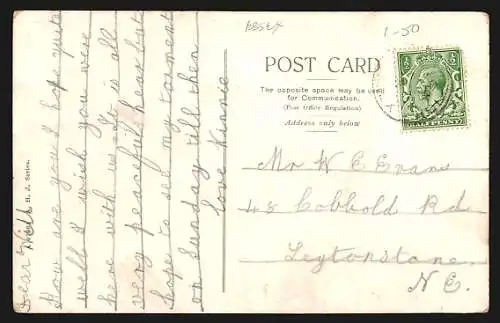 ESSEX
1-50
POST CARD
The opposite space may be used
for Communication.
(Post Office Regulation)
Address only below
H. J. Series.
Dear Will
How are you I hope quite
well I wish you were
here with us It is all
very peaceful hear but
hope to see my torment
on Sunday till then
love Kinnie
Mr W E Evans
48 Cobbold Rd
Leytonstone
N.E.